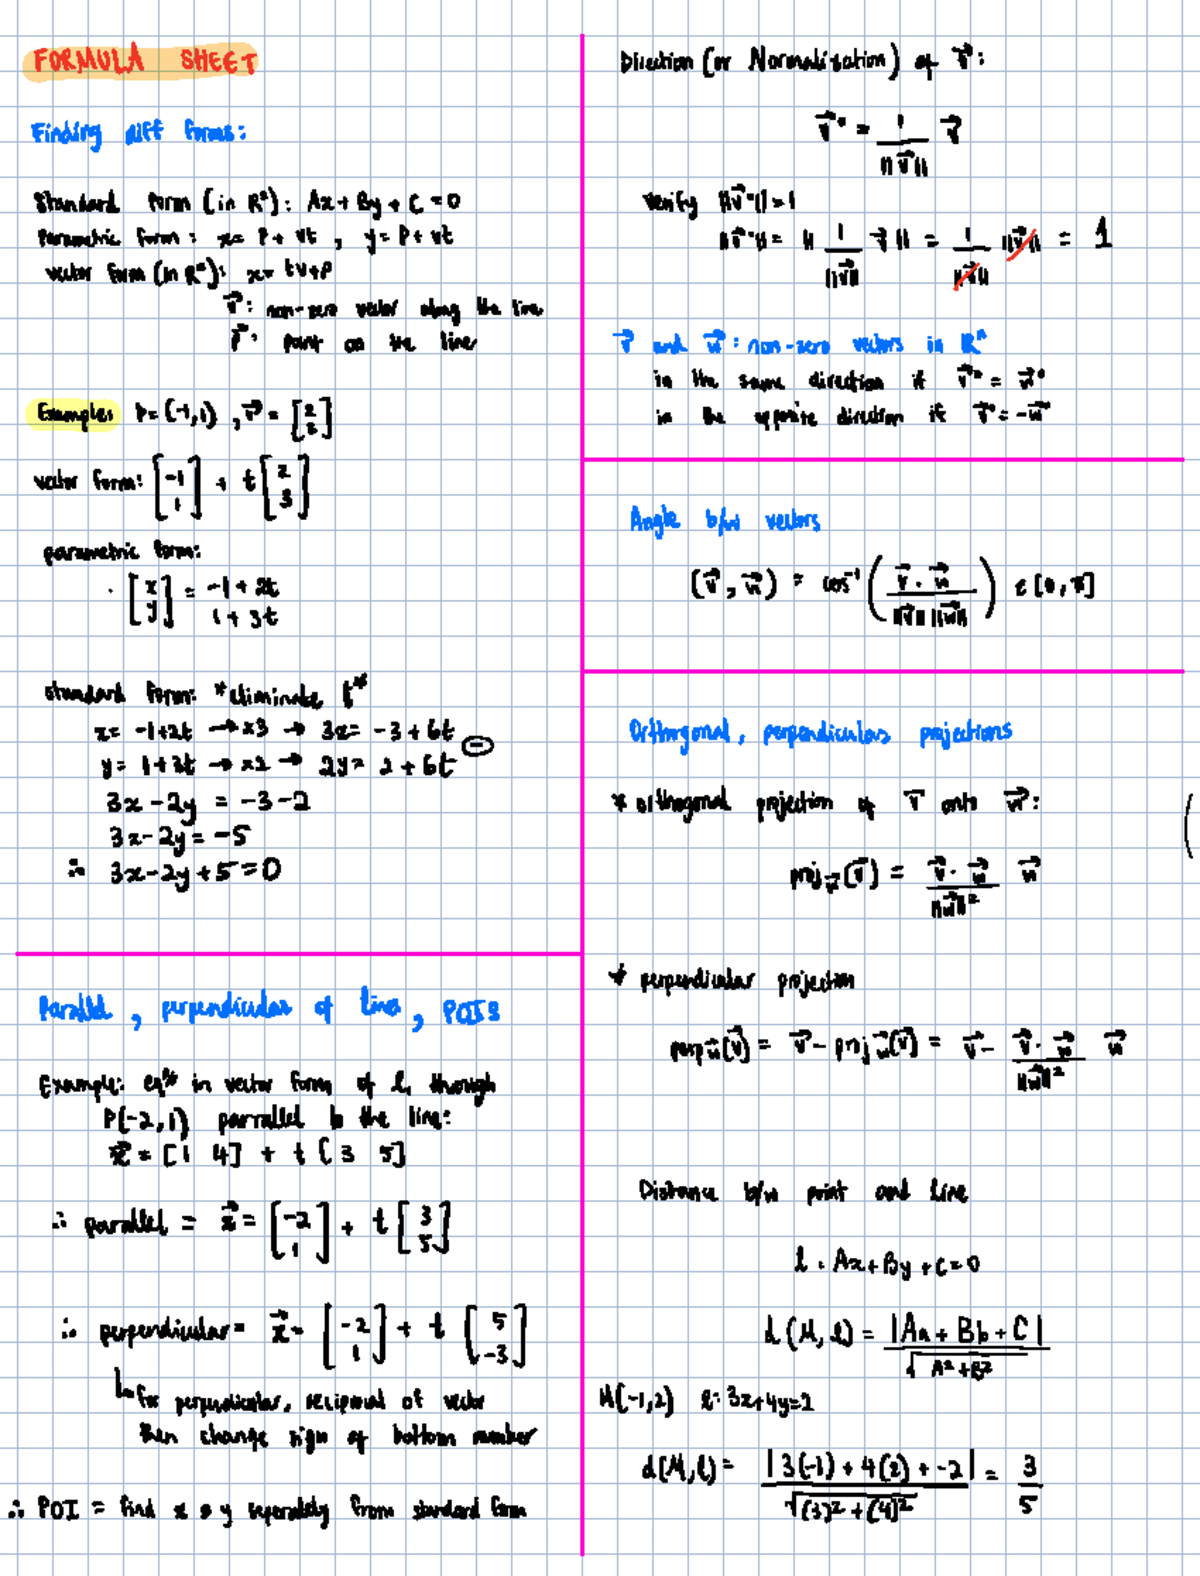 FORMULA SHEET
Finding diff forms:
Standard form (in R²): Ax + By + C = 0
Parametric form: x = P + vt , y = P + vt
vector form (in Rⁿ): x = tv + p
v⃗: non-zero vector along the line
p⃗: point on the line
Examples P = (-1,1) , v⃗ = [2 2]
vector form: [-1 1] + t [2 3]
parametric form:
[x y] = -1 + 2t
1 + 3t
standard form: *eliminate t*
x = -1+2t → x3 → 3x = -3 + 6t
y = 1+3t → x2 → 2y = 2 + 6t ⊖
3x - 2y = -3 - 2
3x - 2y = -5
∴ 3x - 2y + 5 = 0
Parallel, perpendicular of line, POIs
Example: eqⁿ in vector form of l₁ through
P(-2,1) parrallel to the line:
x⃗ = [1 4] + t [3 5]
∴ parallel = x⃗ = [-2 1] + t [3 5]
∴ perpendicular = x⃗ = [-2 1] + t [5 -3]
↳ for perpendicular, reciprocal of vector
then change sign of bottom number
∴ POI = find x & y seperately from standard form
Direction (or Normalisation) of v⃗:
v⃗* = 1/||v⃗|| v⃗
Verify ||v⃗*|| = 1
||v⃗*|| = || 1/||v⃗|| v⃗ || = 1/||v⃗|| ||v⃗|| = 1
v⃗ and w⃗: non-zero vectors in Rⁿ
in the same direction if v⃗* = w⃗*
in the opposite direction if v⃗* = -w⃗*
Angle b/w vectors
(v⃗, w⃗) = cos⁻¹ (v⃗ · w⃗ / ||v⃗|| ||w⃗||) ∈ [0, π]
Orthogonal, perpendicular projections
* Orthogonal projection of v⃗ onto w⃗:
proj w⃗ (v⃗) = v⃗ · w⃗ / ||w⃗||² w⃗
* perpendicular projection
perp w⃗ (v⃗) = v⃗ - proj w⃗ (v⃗) = v⃗ - v⃗ · w⃗ / ||w⃗||² w⃗
Distance b/w point and line
l: Ax + By + C = 0
d(M, l) = |Aa + Bb + C| / √A² + B²
M(-1,2) l: 3x+4y=2
d(M, l) = |3(-1) + 4(2) + -2| / √(3)² + (4)² = 3/5